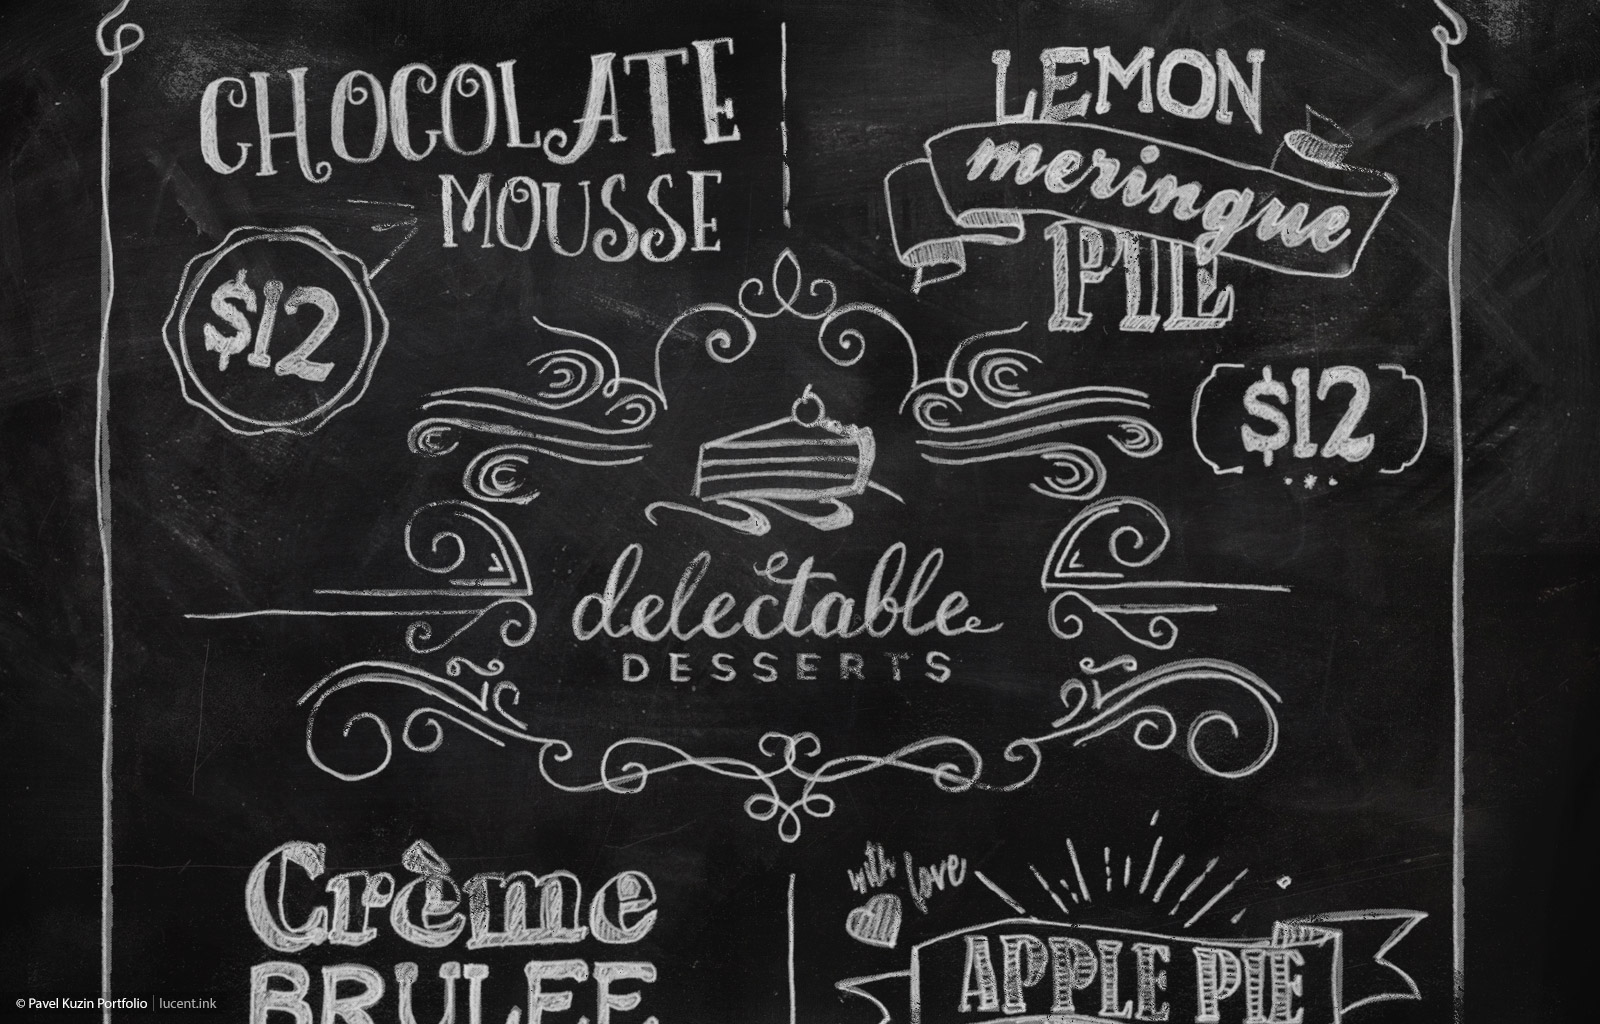 CHOCOLATE
MOUSSE
$12
LEMON
meringue
PIE
$12
delectable
DESSERTS
Crème
BRULEE
with love
APPLE PIE
© Pavel Kuzin Portfolio | lucent.ink